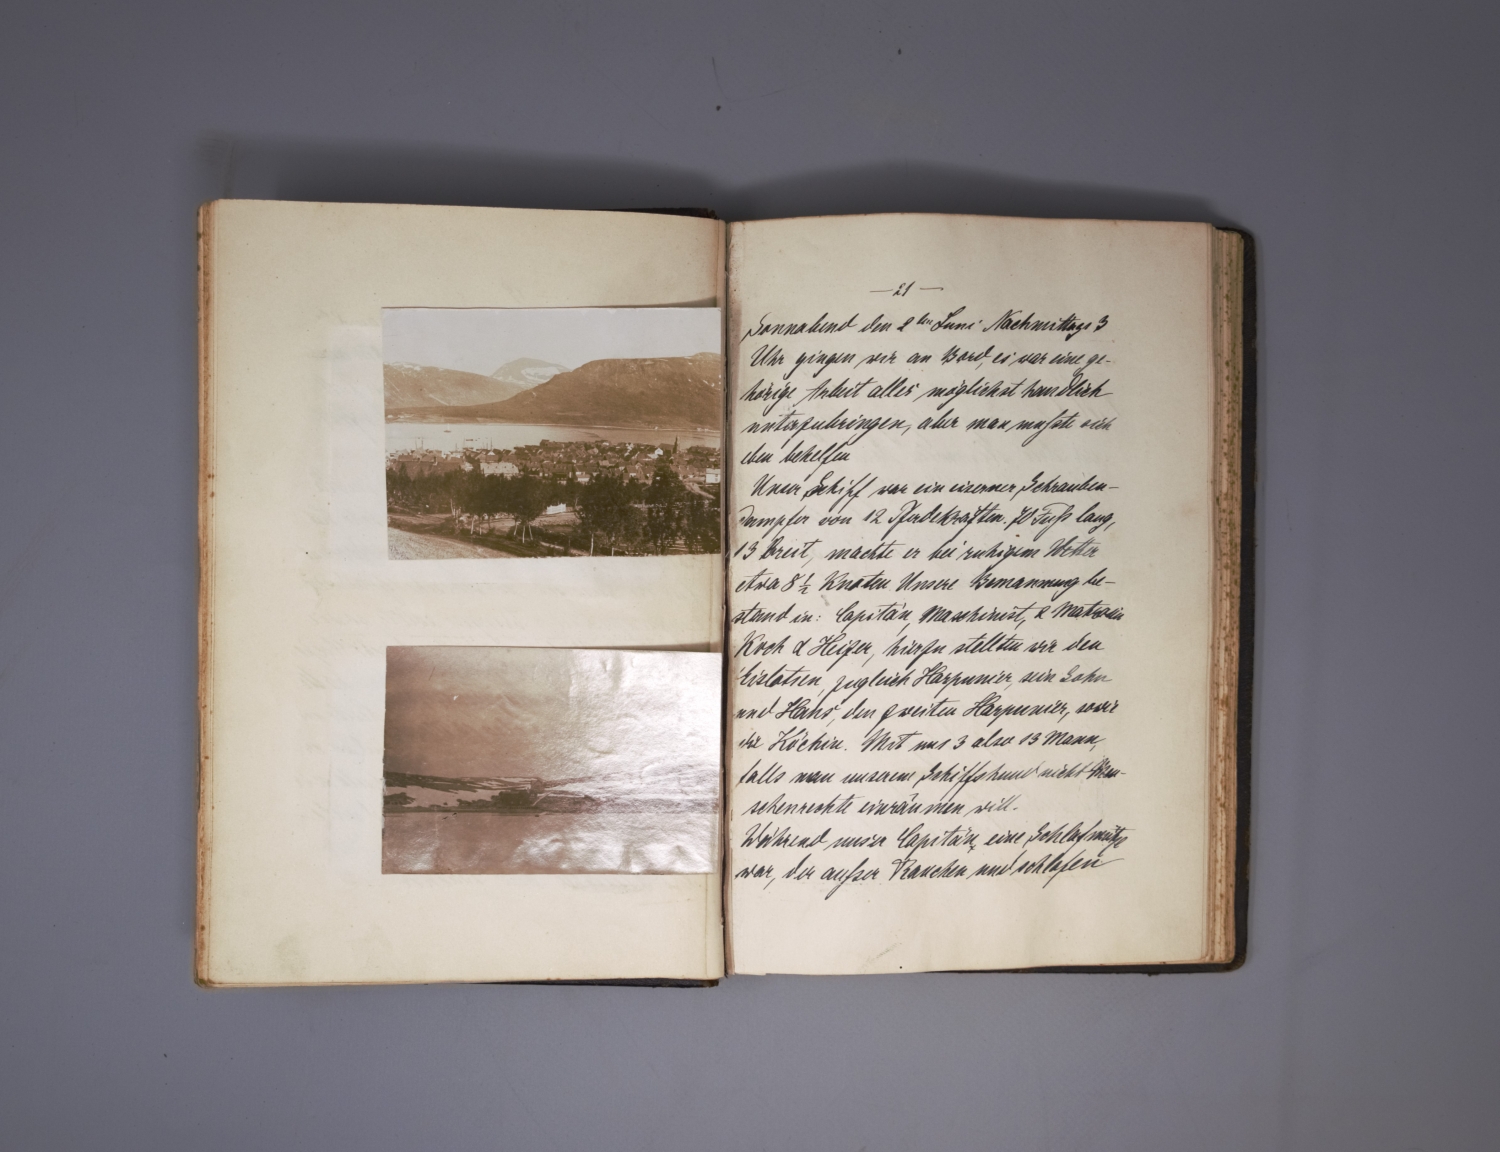 — 21 —
Sonnabend den 2ten Juni Nachmittags 3
Uhr gingen wir an Bord, es war eine ge-
hörige Arbeit alles möglichst handlich
unterzubringen, aber man mußte sich
eben behelfen
Unser Schiff war ein eiserner Schrauben-
dampfer von 12 Pferdekräften. 70 Fuß lang,
13 breit, machte er bei ruhigem Wetter
etwa 8 ½ Knoten. Unsere Bemannung be-
stand in: Capitän, Maschinist, 2 Matrosen
Koch & Heizer, hierzu stellten wir den
Eislotsen, zugleich Harpunier, sein Sohn
und Hans, den zweiten Harpunier, sowie
die Köchin. Mit uns 3 also 13 Mann,
falls man unserem Schiffshund nicht Men-
schenrechte einräumen will.
Während unser Capitän, eine Schlafmütze
war, der außer Rauchen und schlafen